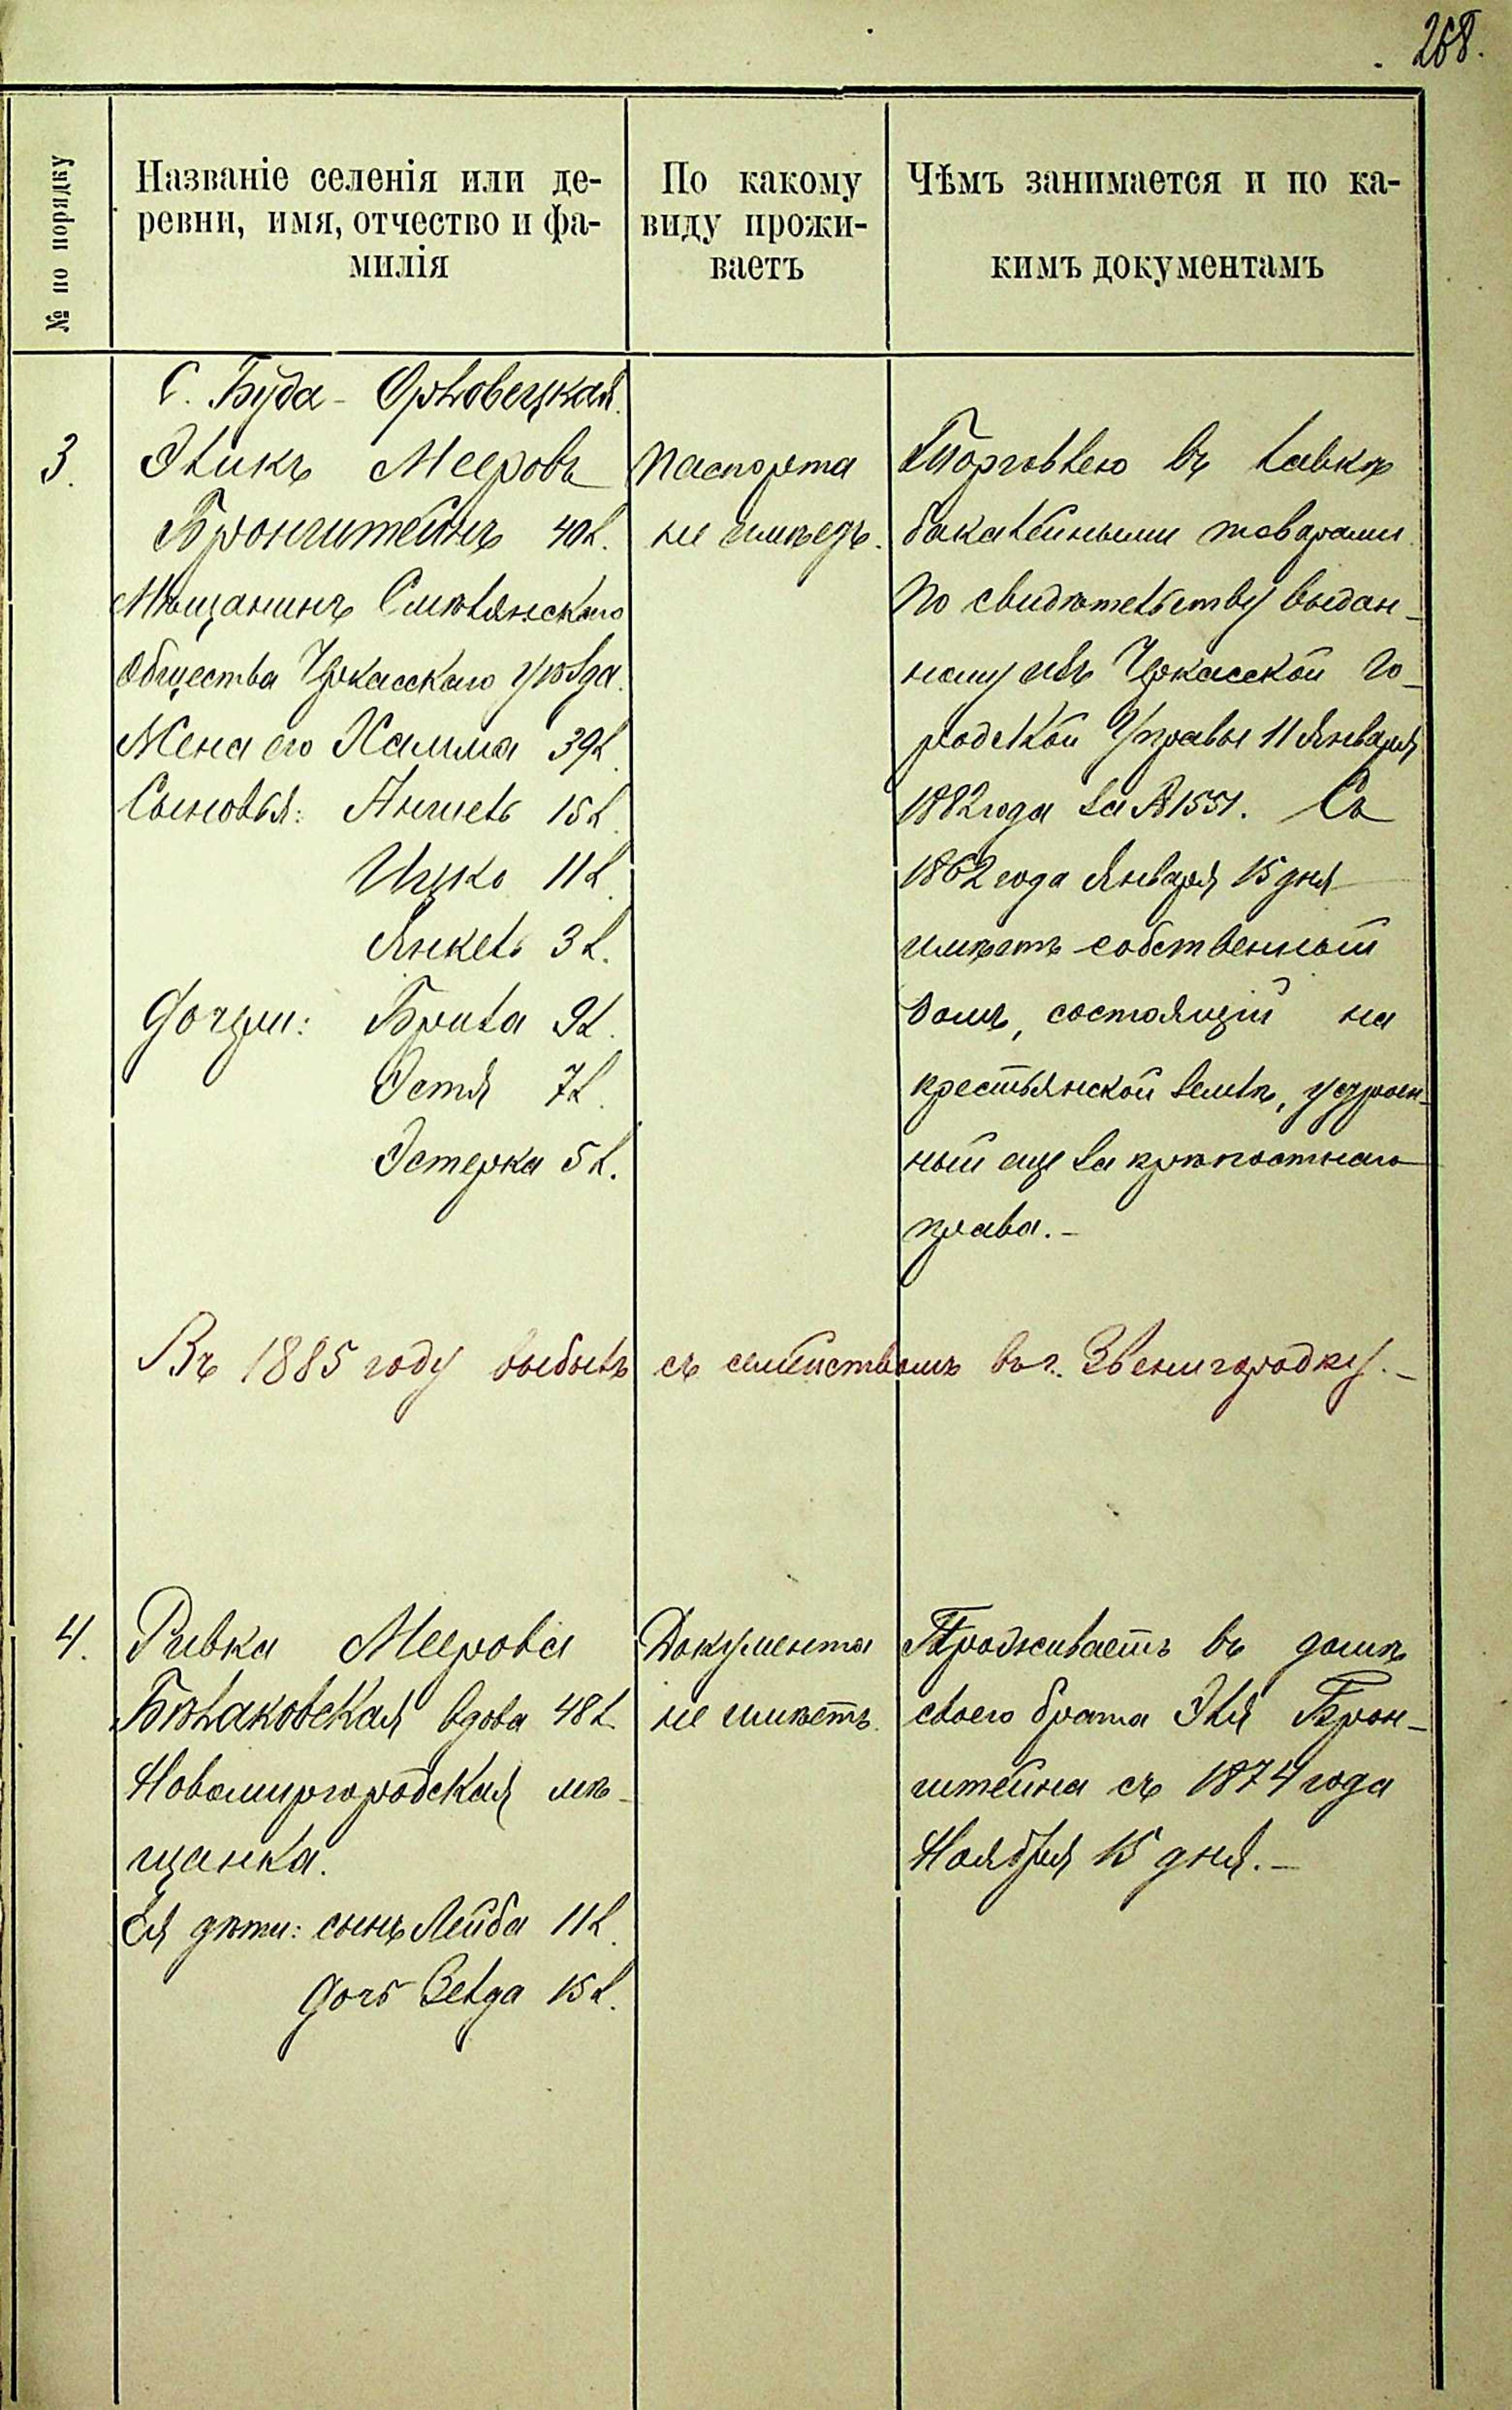 268.
№ по порядку
Названіе селенія или де-
ревни, имя, отчество и фа-
милія
По какому
виду прожи-
ваетъ
Чѣмъ занимается и по ка-
кимъ документамъ
С. Буда - Орловецкая.
3.
Эликъ Мееровъ
Бронштейнъ 40 л.
Мѣщанинъ Смѣлянскаго
общества Черкасскаго уѣзда.
Жена его Хамма 39 л.
Сыновья: Аншель 15 л.
Ицко 11 л.
Янкель 3 л.
Дочери: Брила 9 л.
Эстя 7 л.
Эстерка 5 л.
Паспорта
не имѣетъ.
Торговлею въ лавкѣ
бакалейными товарами
по свидѣтельству выдан-
ному изъ Черкасской Го-
родской Управы 11 Января
1882 года за № 1551. Съ
1862 года Января 15 дня
имѣетъ собственный
домъ, состоящій на
крестьянской землѣ, устроен-
ный еще за крѣпостнаго
права. -
Въ 1885 году выбылъ съ семействомъ въ г. Звенигородку. -
4.
Ривка Меерова
Бѣлаковская вдова 48 л.
Новомиргородская мѣ-
щанка.
Ея дѣти: сынъ Лейба 11 л.
дочь Зелда 15 л.
Документа
не имѣетъ.
Проживаетъ въ домѣ
своего брата Эля Брон-
штейна съ 1874 года
Ноября 15 дня. -